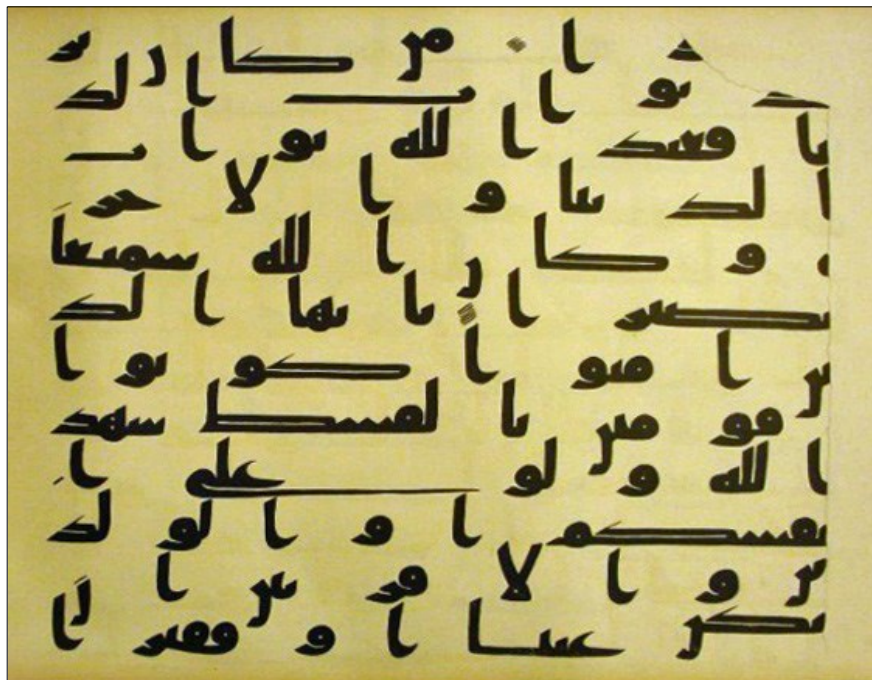 ا من كان ير
يد ثواب الد
نيا فعند الله ثواب
الدنيا والاخر
ة وكان الله سميعا
بصيرا يايها الذ
ين امنوا كونوا
قومين بالقسط شهد
ا لله ولو على ا
نفسكم او الولد
ين والاقربين ان
يكن غنيا او فقيرا